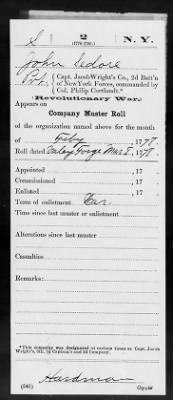 S | 2 | N. Y.
(177X-178X.)
John Sedore
Pvt., Capt. Jacob Wright's Co., 2d Batt'n
of New York Forces, commanded by
Col. Philip Cortlandt.*
(Revolutionary War.)
Appears on
Company Muster Roll
of the organization named above for the month
of Feby, 1778.
Roll dated Valey Forge Mar 2, 1778.
Appointed , 17
Commissioned , 17
Enlisted , 17
Term of enlistment War.
Time since last muster or enlistment
Alterations since last muster
Casualties
Remarks:
*This company was designated at various times as Capt. Jacob
Wright's
Hardman
Copyist.